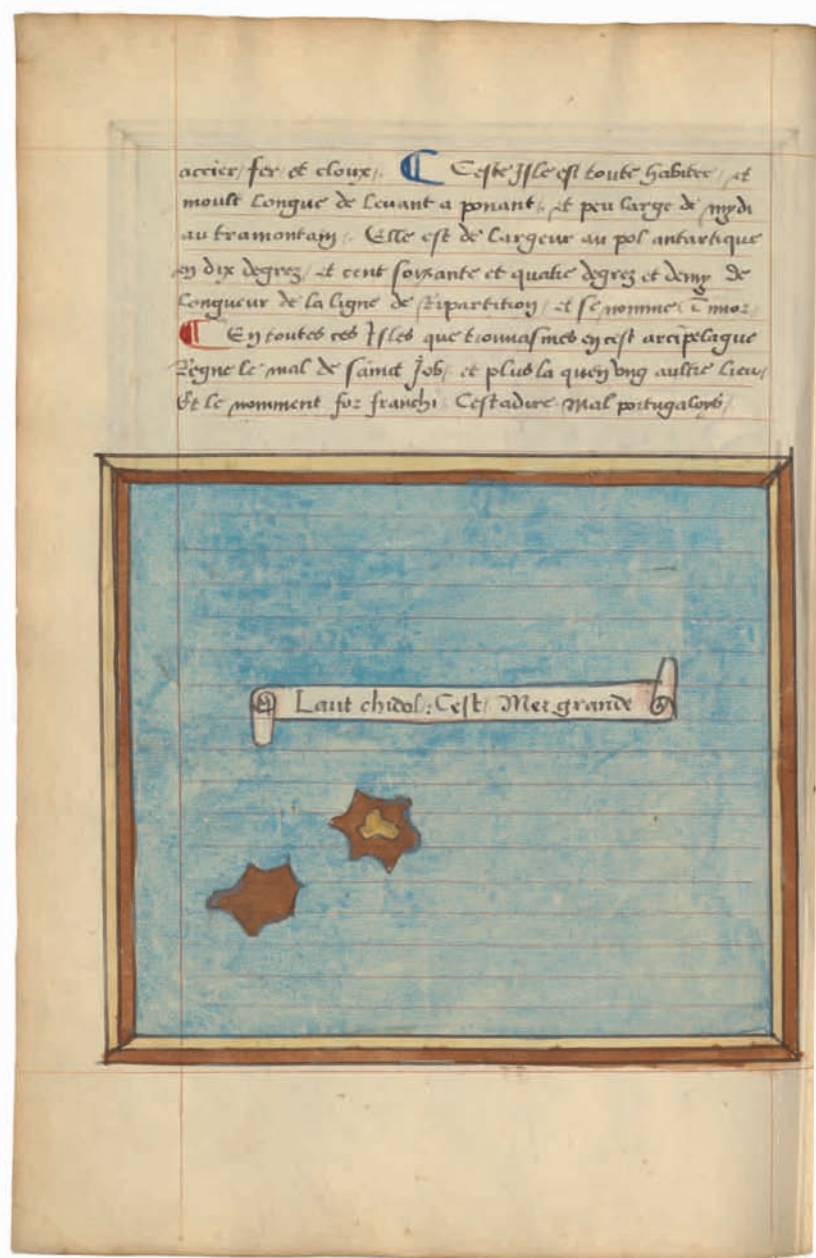 accier, fer et cloux. Ceste Isle est toute habitee, et
moult longue de levant a ponant, et peu large de mydi
au tramontain. Elle est de largeur au pol antartique
en dix degrez, et cent soixante et quatre degrez et demy de
longueur de la ligne de Repartition, et se nomme
En toutes ces Isles que trouvasmes en cest arcipelague
Regne le mal de sainct Job, et plus la quen ung aultre lieu,
Et le nomment for franchi Cestadire Mal portugaloys,
Laut chidol: Cest Mer grande